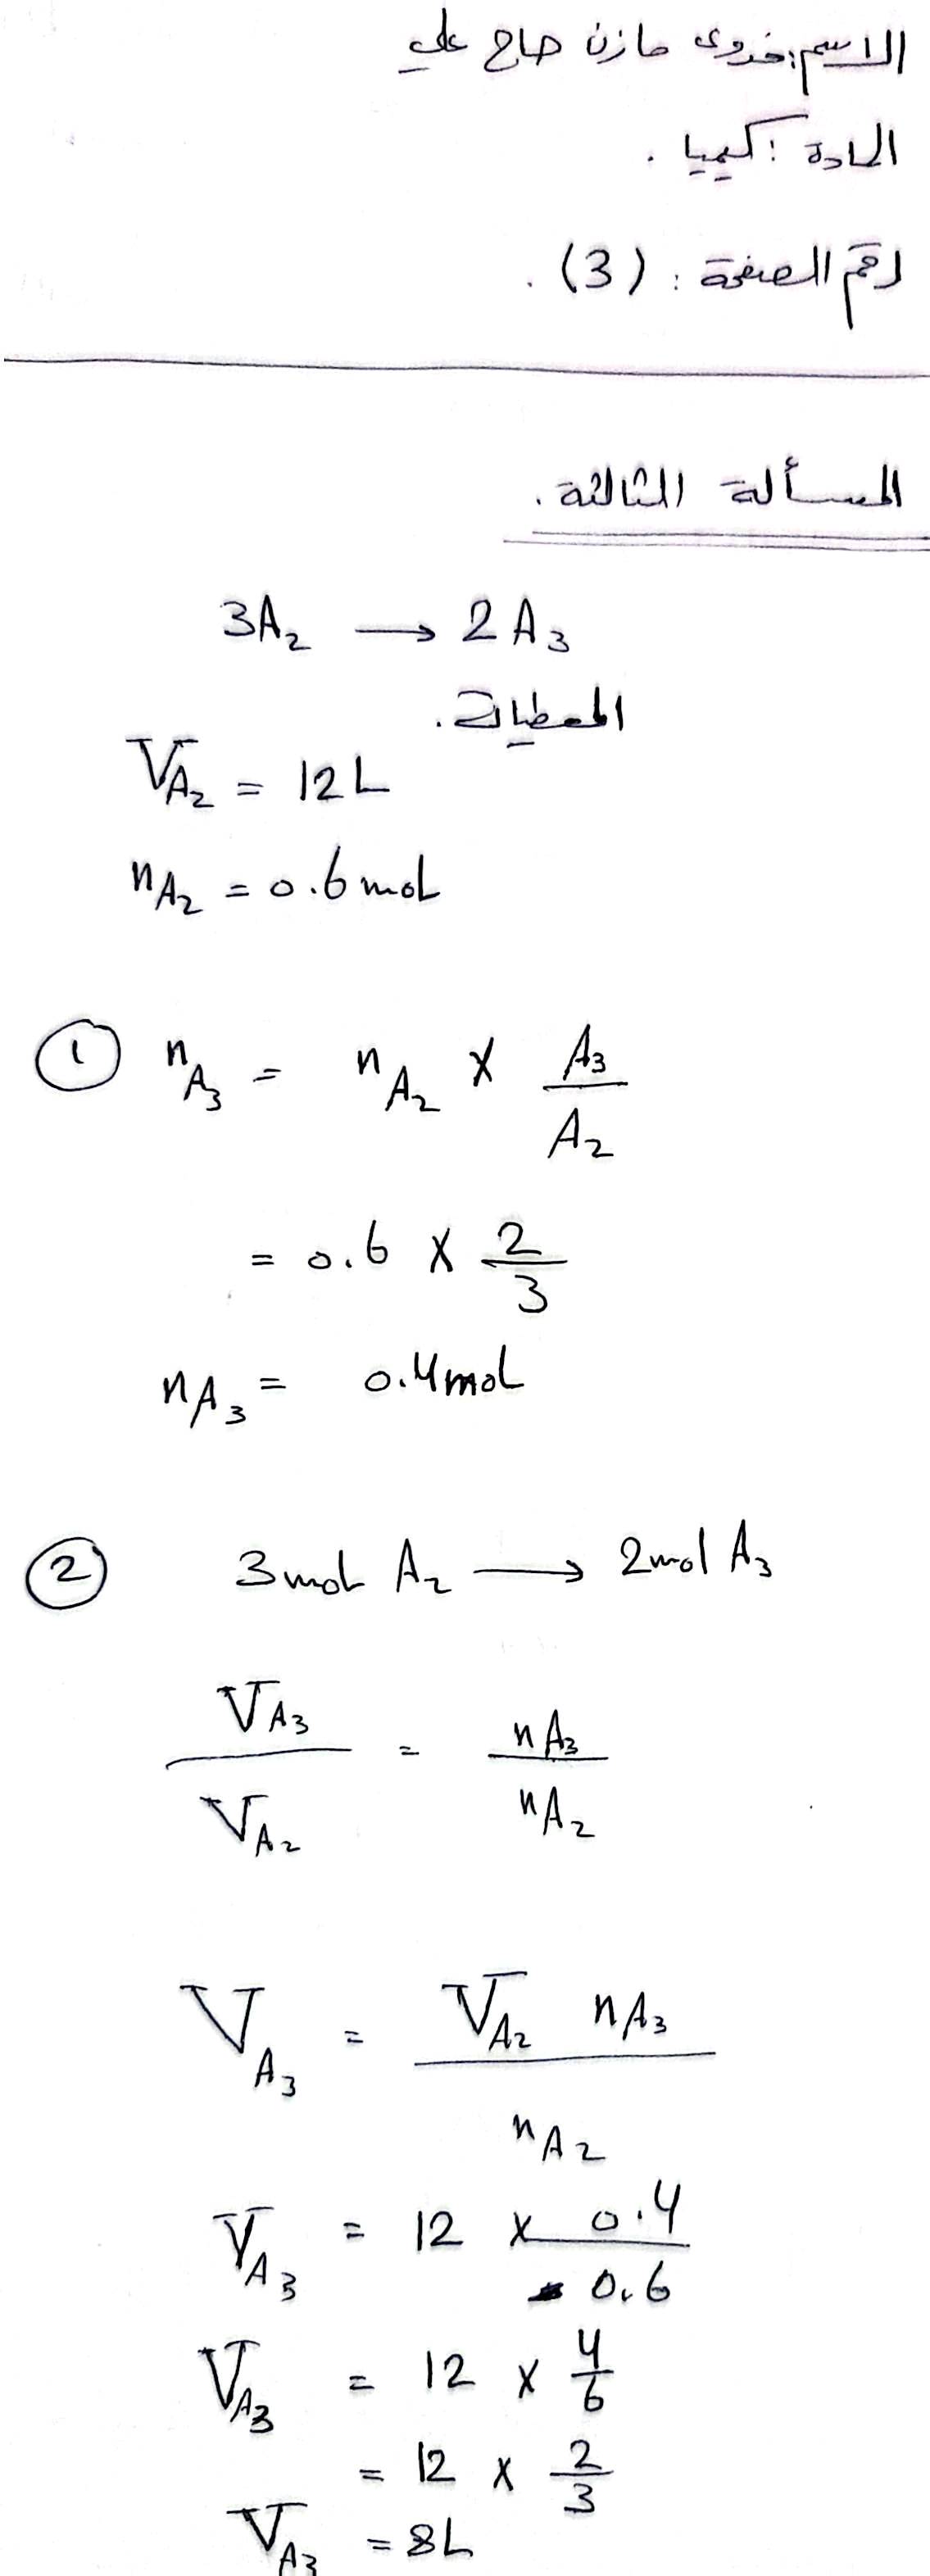 الاسم: فدوى مازن حاج علي
المادة: كيميا.
رقم الصفحة: (3).
المسألة الثالثة.
3A₂ → 2A₃
المعطيات.
V_A₂ = 12L
n_A₂ = 0.6 mol
① n_A₃ = n_A₂ × A₃/A₂
= 0.6 × 2/3
n_A₃ = 0.4 mol
② 3 mol A₂ → 2 mol A₃
V_A₃/V_A₂ = n_A₃/n_A₂
V_A₃ = V_A₂ n_A₃/n_A₂
V_A₃ = 12 × 0.4/0.6
V_A₃ = 12 × 4/6
= 12 × 2/3
V_A₃ = 8L